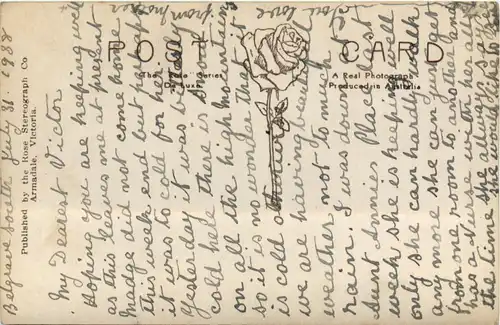 POST CARD
The "Rose" Series
De Luxe
A Real Photograph
Produced in Australia
Published by the Rose Stereograph Co
Armadale, Victoria.
Belgrave South July 31. 1938
My Dearest Victor
Hoping you are keeping well
as this leaves me at present
Madge did not come home
this week end but perhaps
it was to cold for her
Yesterday it was bitterly
cold here there is snow
on all the high mountains
so it is no wonder that it
is cold
we are having beautiful
weather not to much
rain. I was down at
Aunt Annies Place last
week she is keeping well
only she can hardly walk
any more she can just get
from one room to another and
has a Nurse with her all
the time she
Your love
from Mother